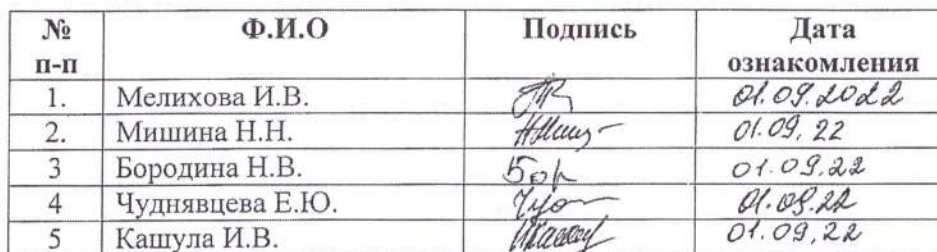 № п-п Ф.И.О Подпись Дата ознакомления
1. Мелихова И.В. 01.09.2022
2. Мишина Н.Н. 01.09.22
3 Бородина Н.В. Бор 01.09.22
4 Чуднявцева Е.Ю. 01.09.22
5 Кашула И.В. 01.09.22